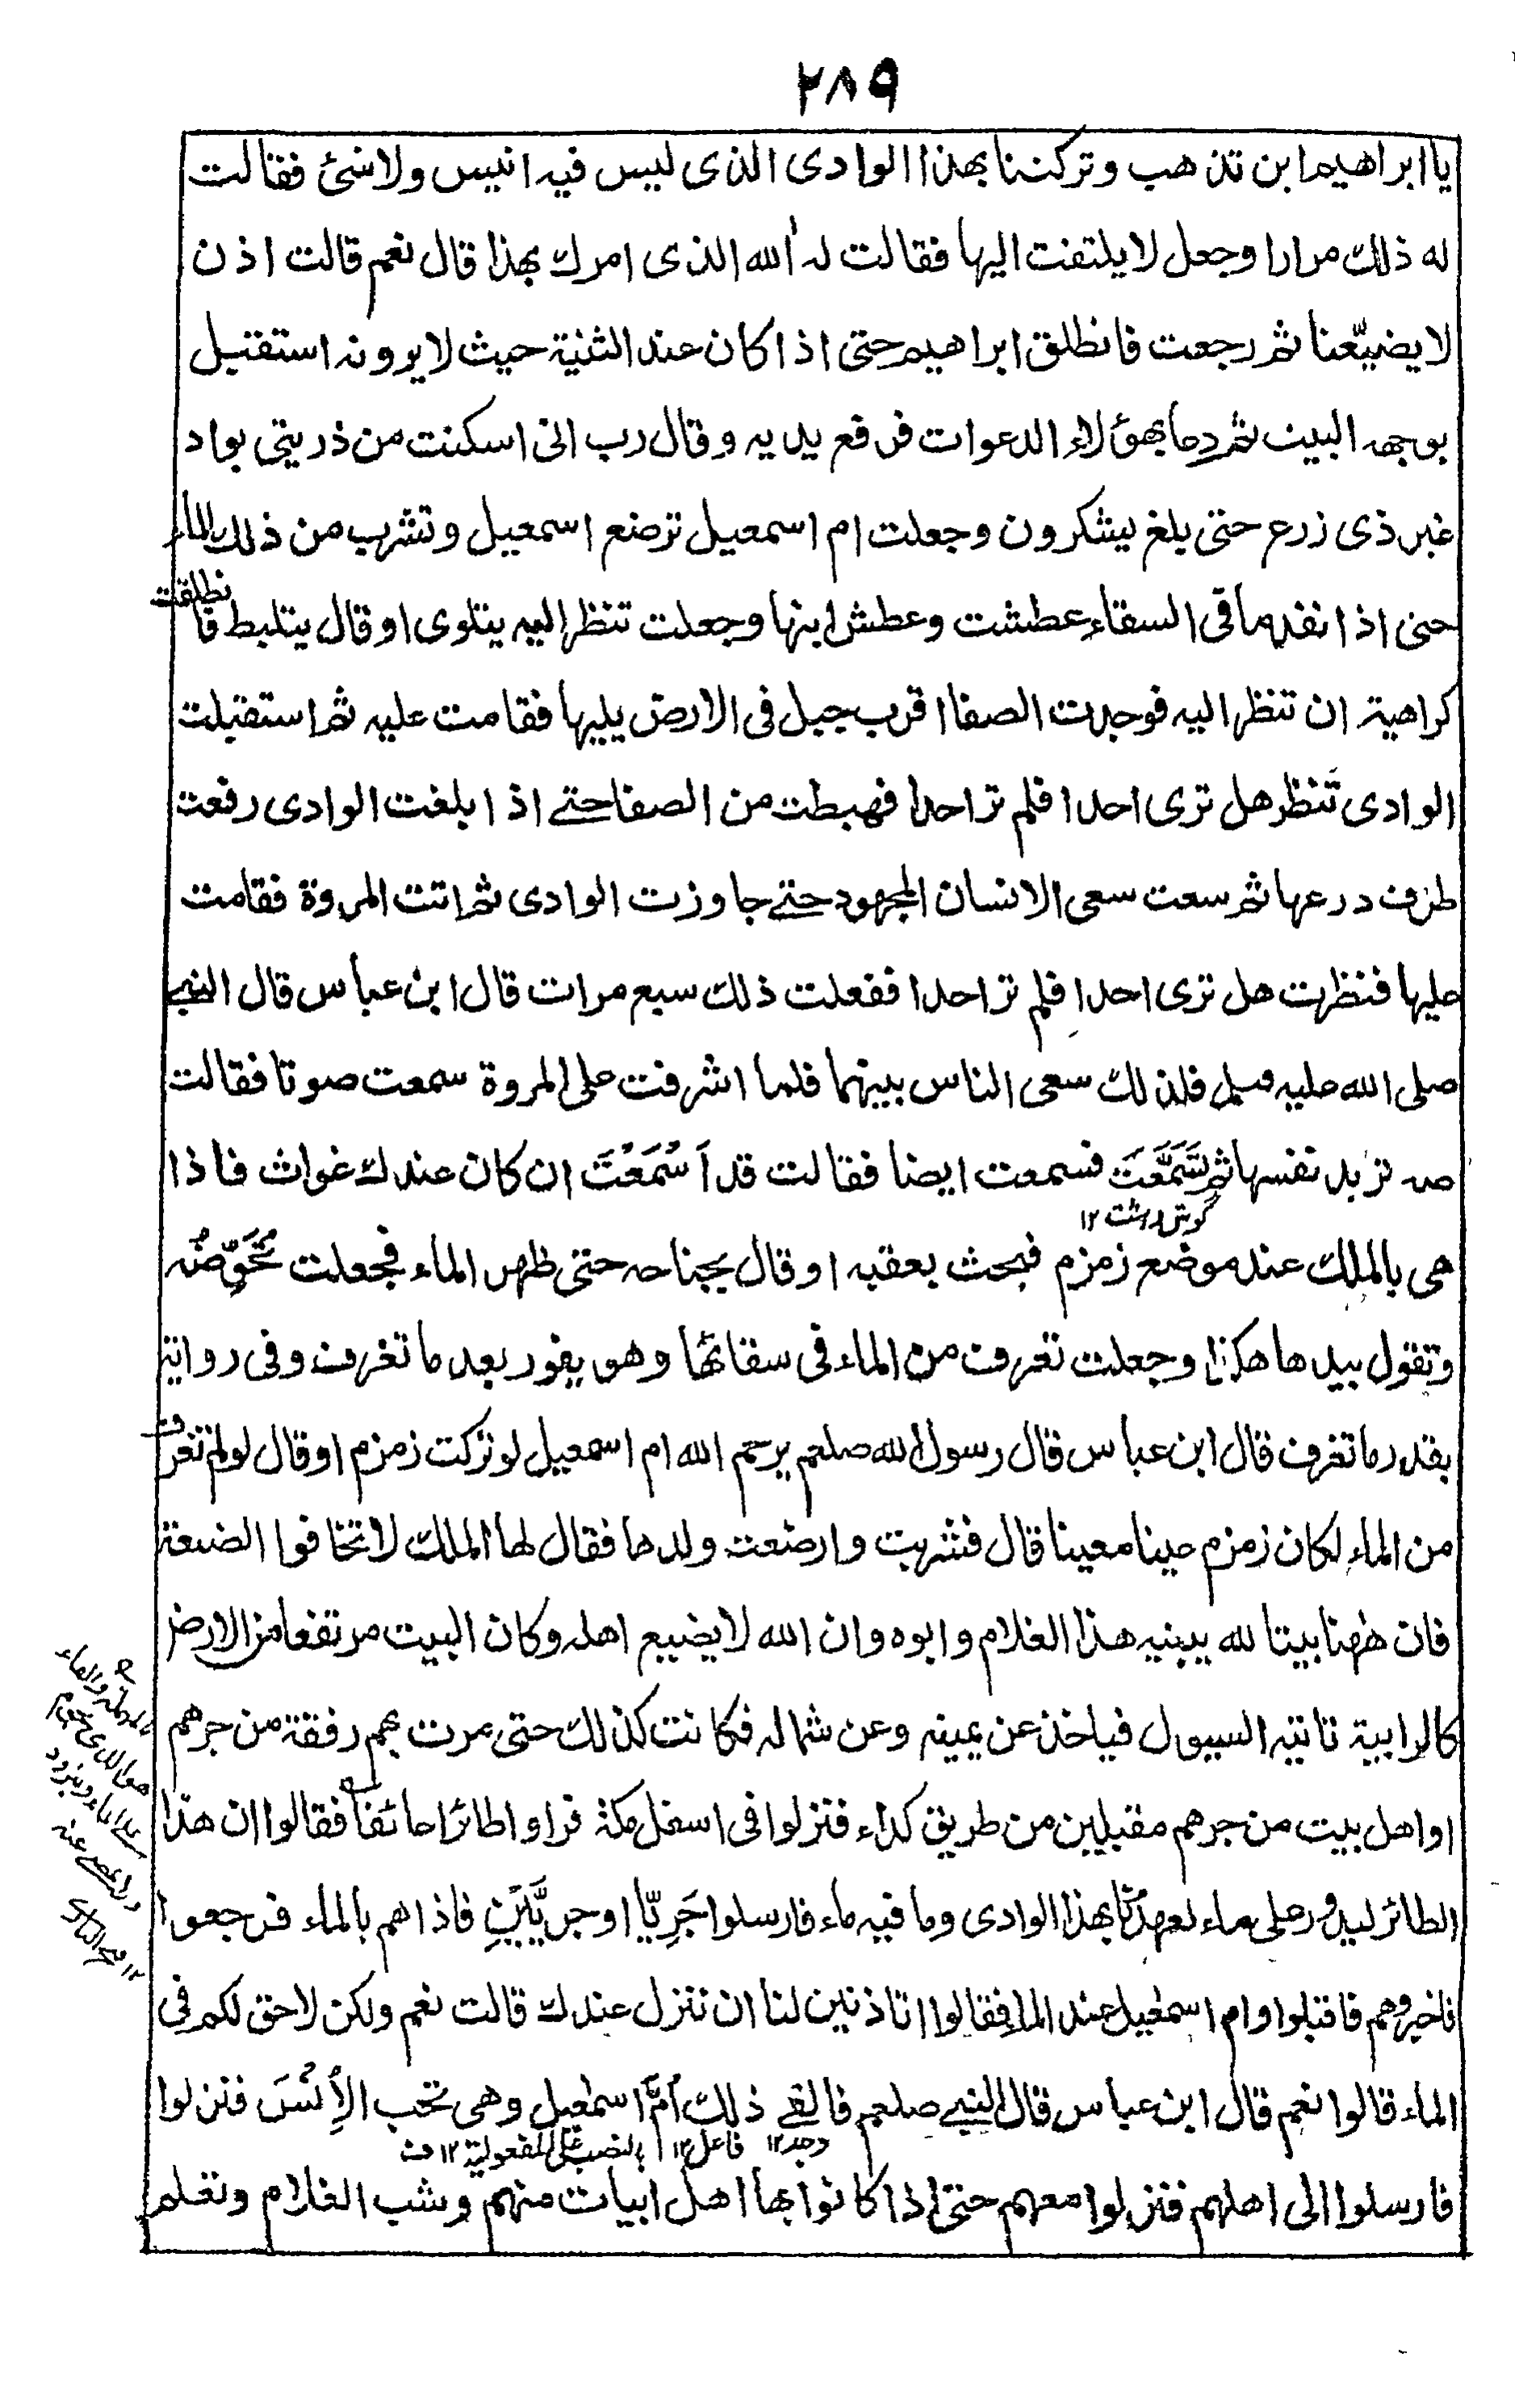 ٢٨٩
يا ابراهيم اين تذهب وتركتنا بهذا الوادى الذى ليس فيه انيس ولا شئ فقالت
له ذلك مرارا وجعل لا يلتفت اليها فقالت له أالله الذى امرك بهذا قال نعم قالت اذن
لا يضيّعنا ثم رجعت فانطلق ابراهيم حتى اذا كان عند الثنية حيث لا يرونه استقبل
بوجهه البيت ثم دعا بهؤلاء الدعوات فرفع يديه وقال رب انى اسكنت من ذريتى بواد
غير ذى زرع حتى بلغ يشكرون وجعلت ام اسمعيل ترضع اسمعيل وتشرب من ذلك الماء
حتى اذا نفد ما فى السقاء عطشت وعطش ابنها وجعلت تنظر اليه يتلوى او قال يتلبط فانطلقت
كراهية ان تنظر اليه فوجدت الصفا اقرب جبل فى الارض يليها فقامت عليه ثم استقبلت
الوادى تَنظر هل ترى احدا فلم تر احدا فهبطت من الصفا حتى اذا بلغت الوادى رفعت
طرف درعها ثم سعت سعى الانسان المجهود حتى جاوزت الوادى ثم اتت المروة فقامت
عليها فنظرت هل ترى احدا فلم تر احدا ففعلت ذلك سبع مرات قال ابن عباس قال النبى
صلى الله عليه وسلم فلذلك سعى الناس بينهما فلما اشرفت على المروة سمعت صوتا فقالت
صه تريد نفسها ثم تَسَمَّعَتْ فسمعت ايضا فقالت قد اَسْمَعْتَ ان كان عندك غواث فاذا
گوش داشت ١٢
هى بالملك عند موضع زمزم فبحث بعقبه او قال بجناحه حتى ظهر الماء فجعلت تُحَوِّضُه
وتقول بيدها هكذا وجعلت تغرف من الماء فى سقائها وهو يفور بعد ما تغرف وفى رواية
بقدر ما تغرف قال ابن عباس قال رسول الله صلعم يرحم الله ام اسمعيل لو تركت زمزم او قال لو لم تغرف
من الماء لكان زمزم عينا معينا قال فشربت وارضعت ولدها فقال لها الملك لا تخافوا الضيعة
فان ههنا بيتا لله يبنيه هذا الغلام وابوه وان الله لا يضييع اهله وكان البيت مرتفعا من الارض
كالرابية تاتيه السيول فياخذ عن يمينه وعن شماله فكانت كذلك حتى مرت بهم رفقة من جرهم
او اهل بيت من جرهم مقبلين من طريق كداء فنزلوا فى اسفل مكة فراوا طائرا عائفا فقالوا ان هذا
الطائر ليدور على ماء لعهدنا بهذا الوادى وما فيه ماء فارسلوا جَرِيّا او جريَّيْنِ فاذا هم بالماء فرجعوا
فاخبروهم فاقبلوا وام اسمعيل عند الماء فقالوا اتاذنين لنا ان ننزل عندك قالت نعم ولكن لا حق لكم فى
الماء قالوا نعم قال ابن عباس قال النبى صلعم فالفى ذلك اُمَّ اسمعيل وهى تحب الاُِنْسَ فنزلوا
وجد ١٢ فاعل ١٢ بالنصب على المفعولية ١٢ ف
فارسلوا الى اهلهم فنزلوا معهم حتى اذا كانوا بها اهل ابيات منهم وشب الغلام وتعلم
بالمهملة والفاء
هو الذى يحوم
على الماء ويتردد
ولا يمضى عنه
١٢ فتح البارى